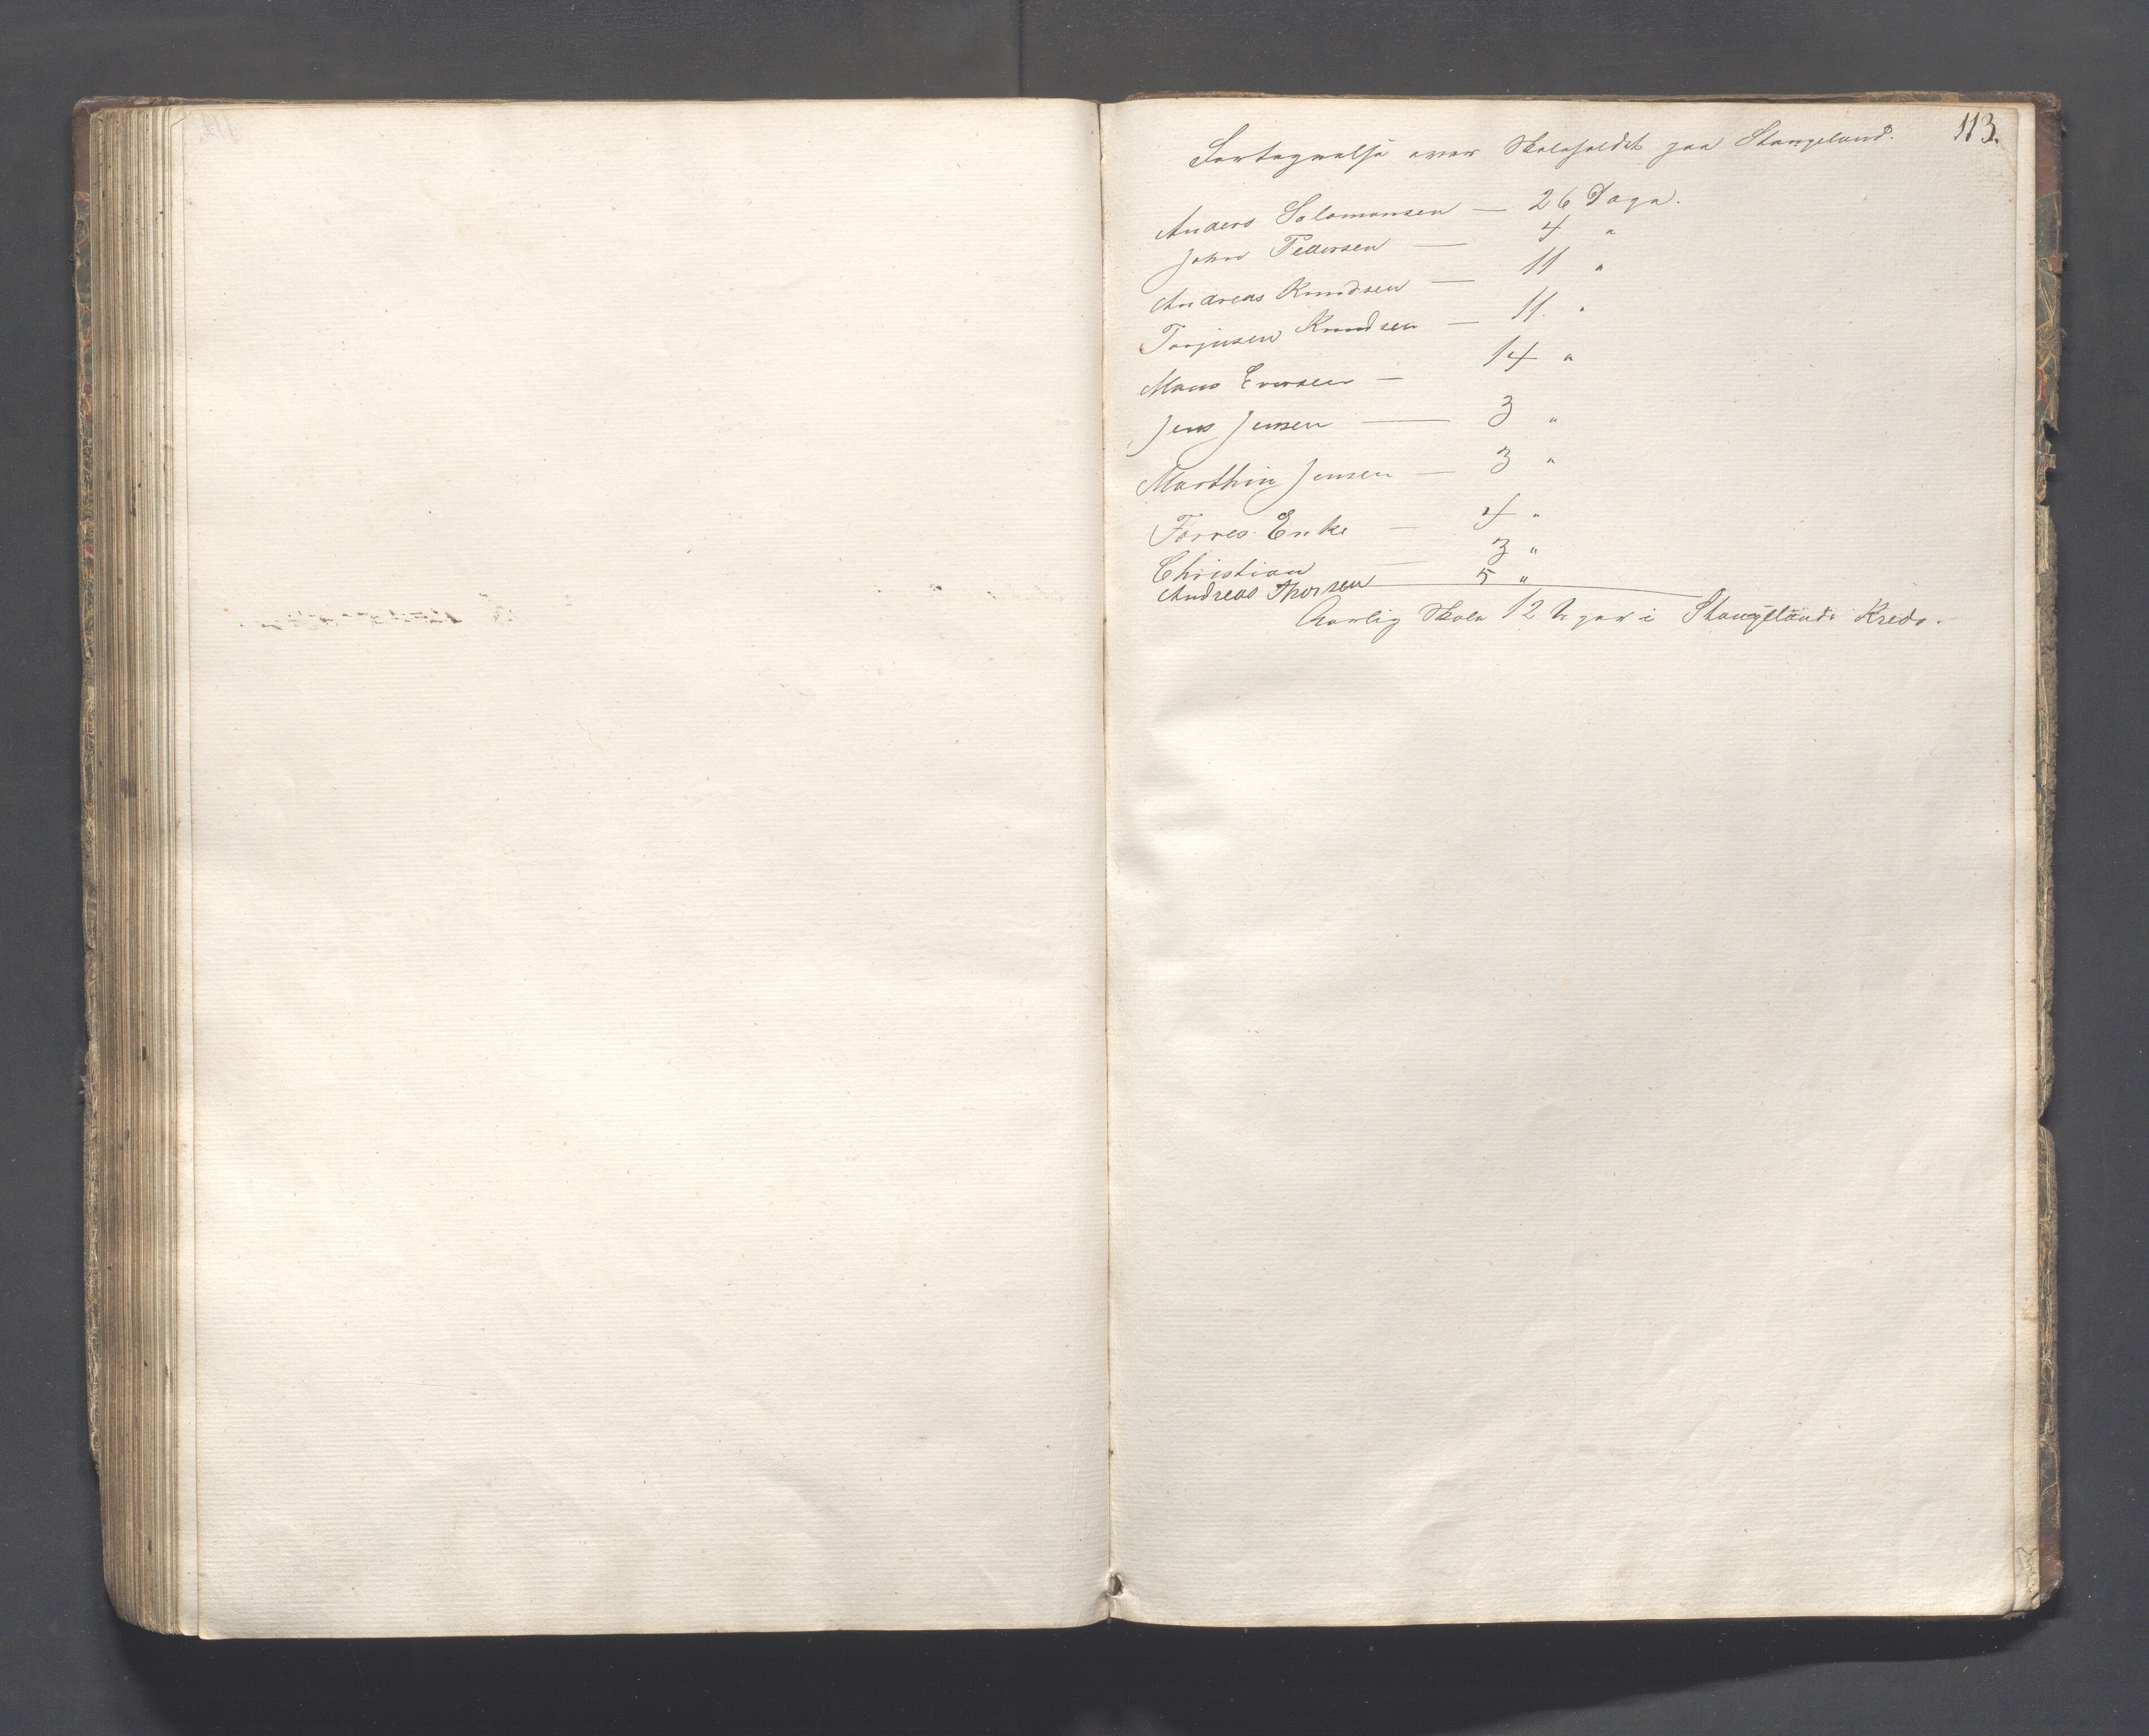 113.
Fortegnelse over Skoleholdet paa Stangeland.
Anders Salomonsen — 26 Dage.
John Pedersen — 4 "
Andreas Knudsen — 11 "
Torjusen Knudsen — 11. "
Mons Eversen — 14 "
Jens Jensen — 3 "
Marthin Jensen — 3 "
Torres Enke — 4 "
Christian — 3 "
Andreas Thorsen — 5 "
Aarlig Skole 12 Uger i Stangelands Kreds.